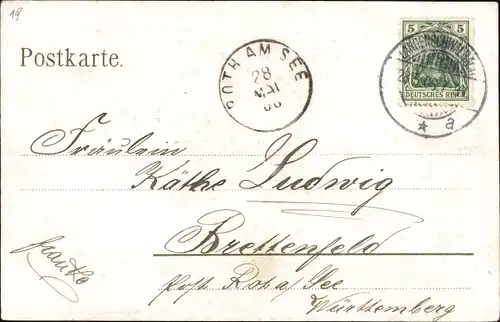 19
5 5
DEUTSCHES REICH
LANGENSCHWALBACH
* a
Postkarte.
ROTH AM SEE
28
MAI
Fräulein
Käthe Ludwig
Brettenfeld
Post Rot a/See
Württemberg
franko